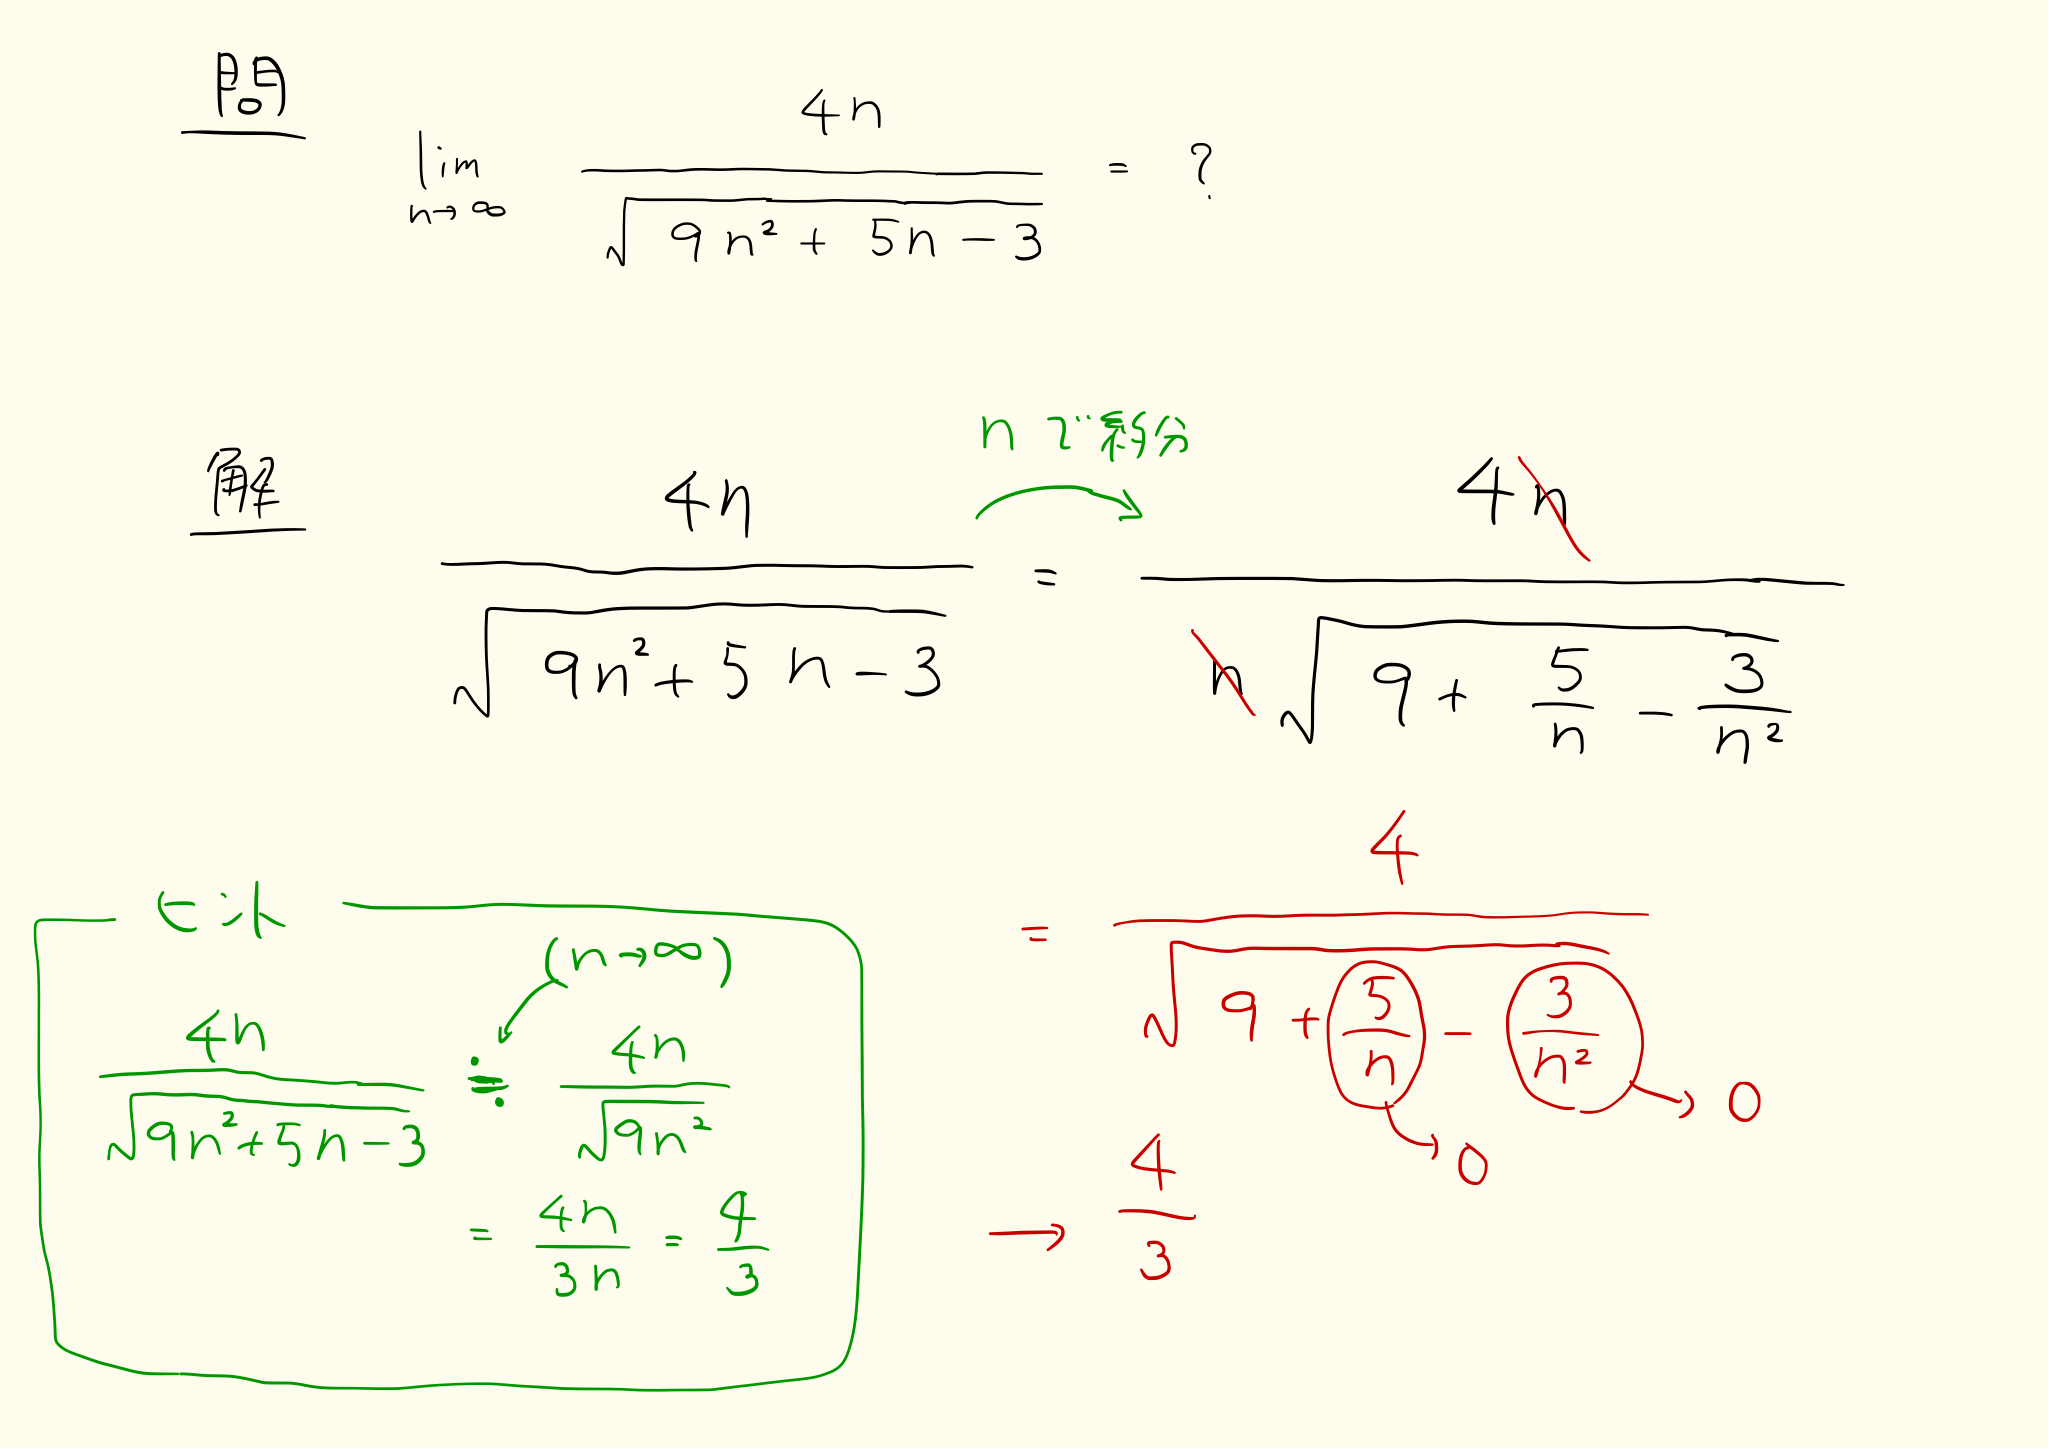 問
lim n→∞ 4n / √(9n² + 5n − 3) = ?
nで約分
解
4n / √(9n² + 5n − 3) = 4n / n√(9 + 5/n − 3/n²)
= 4 / √(9 + 5/n − 3/n²)
→ 0
→ 0
→ 4/3
ヒント
(n→∞)
4n / √(9n² + 5n − 3) ≒ 4n / √9n²
= 4n / 3n = 4/3